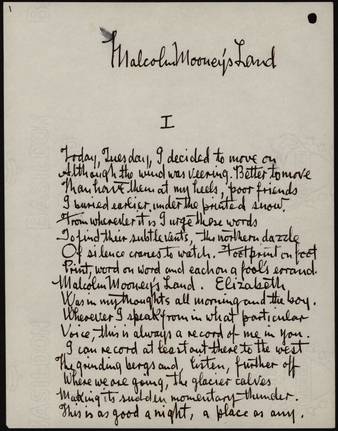 1
Malcolm Mooney's Land
I
Today, Tuesday, I decided to move on
Although the wind was veering. Better to move
Than have them at my heels, poor friends
I buried earlier under the printed snow.
From wherever it is I urge these words
To find their subtle vents, the northern dazzle
Of silence cranes to watch. Footprint on foot
Print, word on word and each on a fool's errand.
Malcolm Mooney's Land. Elizabeth
Was in my thoughts all morning and the boy.
Wherever I speak from in what particular
Voice, this is always a record of me in you.
I can record at least out there to the west
The grinding bergs and, listen, further off
Where we are going, the glacier calves
Making its sudden momentary thunder.
This is as good a night, a place as any.